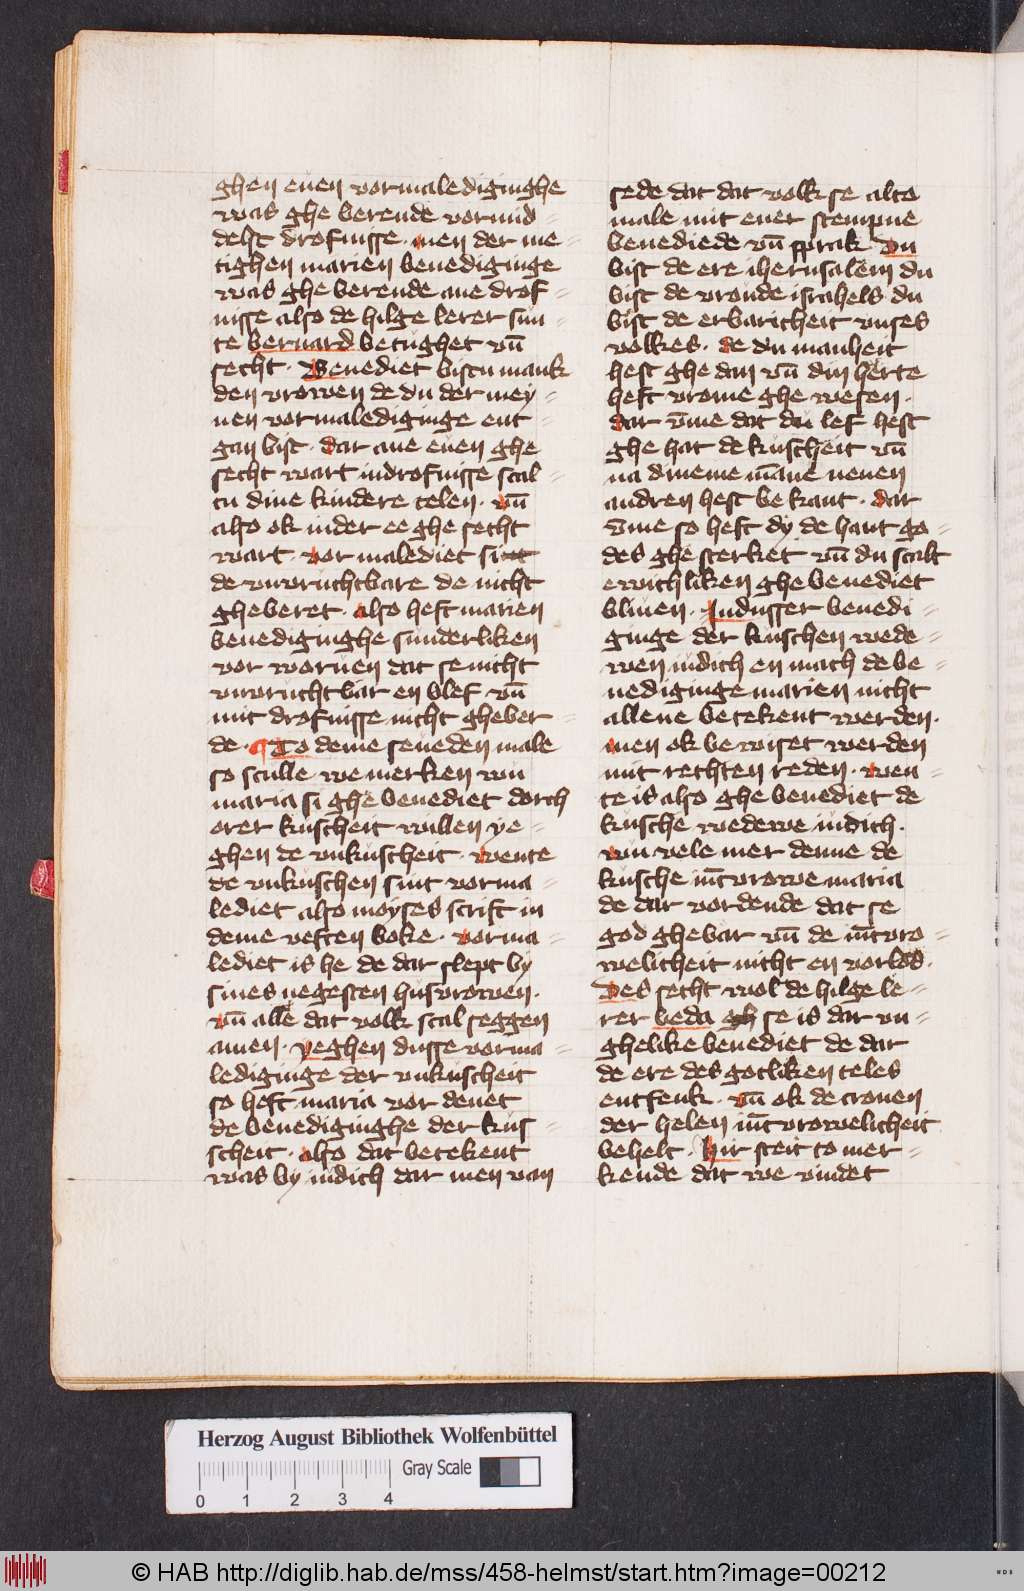 ghen euen vormalediginghe
was ghe berende vormid⸗
delst drofnisse · men der me⸗
tighen marien benediginge
was ghe berende ane drof⸗
nisse also de hilge lerer sun⸗
te bernard betughet vn̄
secht · Benediet bistu mank
den vrowen de du der mey⸗
nen vormalediginge ent⸗
gan bist · dar ane euen ghe
secht wart in drofnisse scal⸗
tu dine kindere telen · vn̄
also ok in der ee ghe secht
wart · vor malediet sint
de vnvruchtbare de nicht
gheberet · also heft marien
benediginghe sunderliken
vor woruen dat se nicht
vnvrucht bar en blef vn̄
mit drofnisse nicht gheber⸗
de · ¶ To deme seueden male
so sculle we merken wu
maria si ghe benediet dorch
orer kuscheit willen ye⸗
ghen de vnkuscheit · wente
de vnkuschen sint vorma⸗
lediet also moyses scrift in
deme veften boke · vorma⸗
lediet is he de dar slept by
sines negesten husvrowen ·
vn̄ alle dat volk scal seggen
amen · yeghen dusse vorma⸗
lediginge der vnkuscheit
so heft maria vor denet
de benediginghe der kus⸗
scheit · also dat betekent
was by iudich dar men van
sede dat dat volk se alto
male mit ener stempne
benediede vn̄ sprak Du
bist de ere iherusalem du
bist de vroude israhels du
bist de erbaricheit vnses
volkes · de du manheit
hest ghe dan vn̄ din herte
heft vrome ghe wesen ·
dar v̄me dat du lef hest
ghe hat de kuscheit vn̄
na dineme māne nenen
andren hest be kant · dar
v̄me so heft dy de hant go⸗
des ghe sterket vn̄ du scalt
ewichliken ghe benediet
bliuen · In dusser benedi⸗
ginge der kuschen wede⸗
wen iudich en mach de be⸗
nediginge marien nicht
allene betekent werden ·
men ok be wiset werden
mit rechten reden · wen⸗
te is also ghe benediet de
kusche wedewe iudich ·
wu vele mer denne de
kusche iūcvrowe maria
de dar vordende dat se
god ghebar vn̄ de iūcvro⸗
welicheit nicht en vorlos ·
Des secht wol de hilge le⸗
rer beda se is dar vn⸗
ghelike benediet de dar
de ere des gotliken teles
entfenk · vn̄ ok de cronen
der helen iūcvrowelicheit
behelt · Hir steit to mer⸗
kende dat we vindet
Herzog August Bibliothek Wolfenbüttel
Gray Scale
0 1 2 3 4
© HAB http://diglib.hab.de/mss/458-helmst/start.htm?image=00212